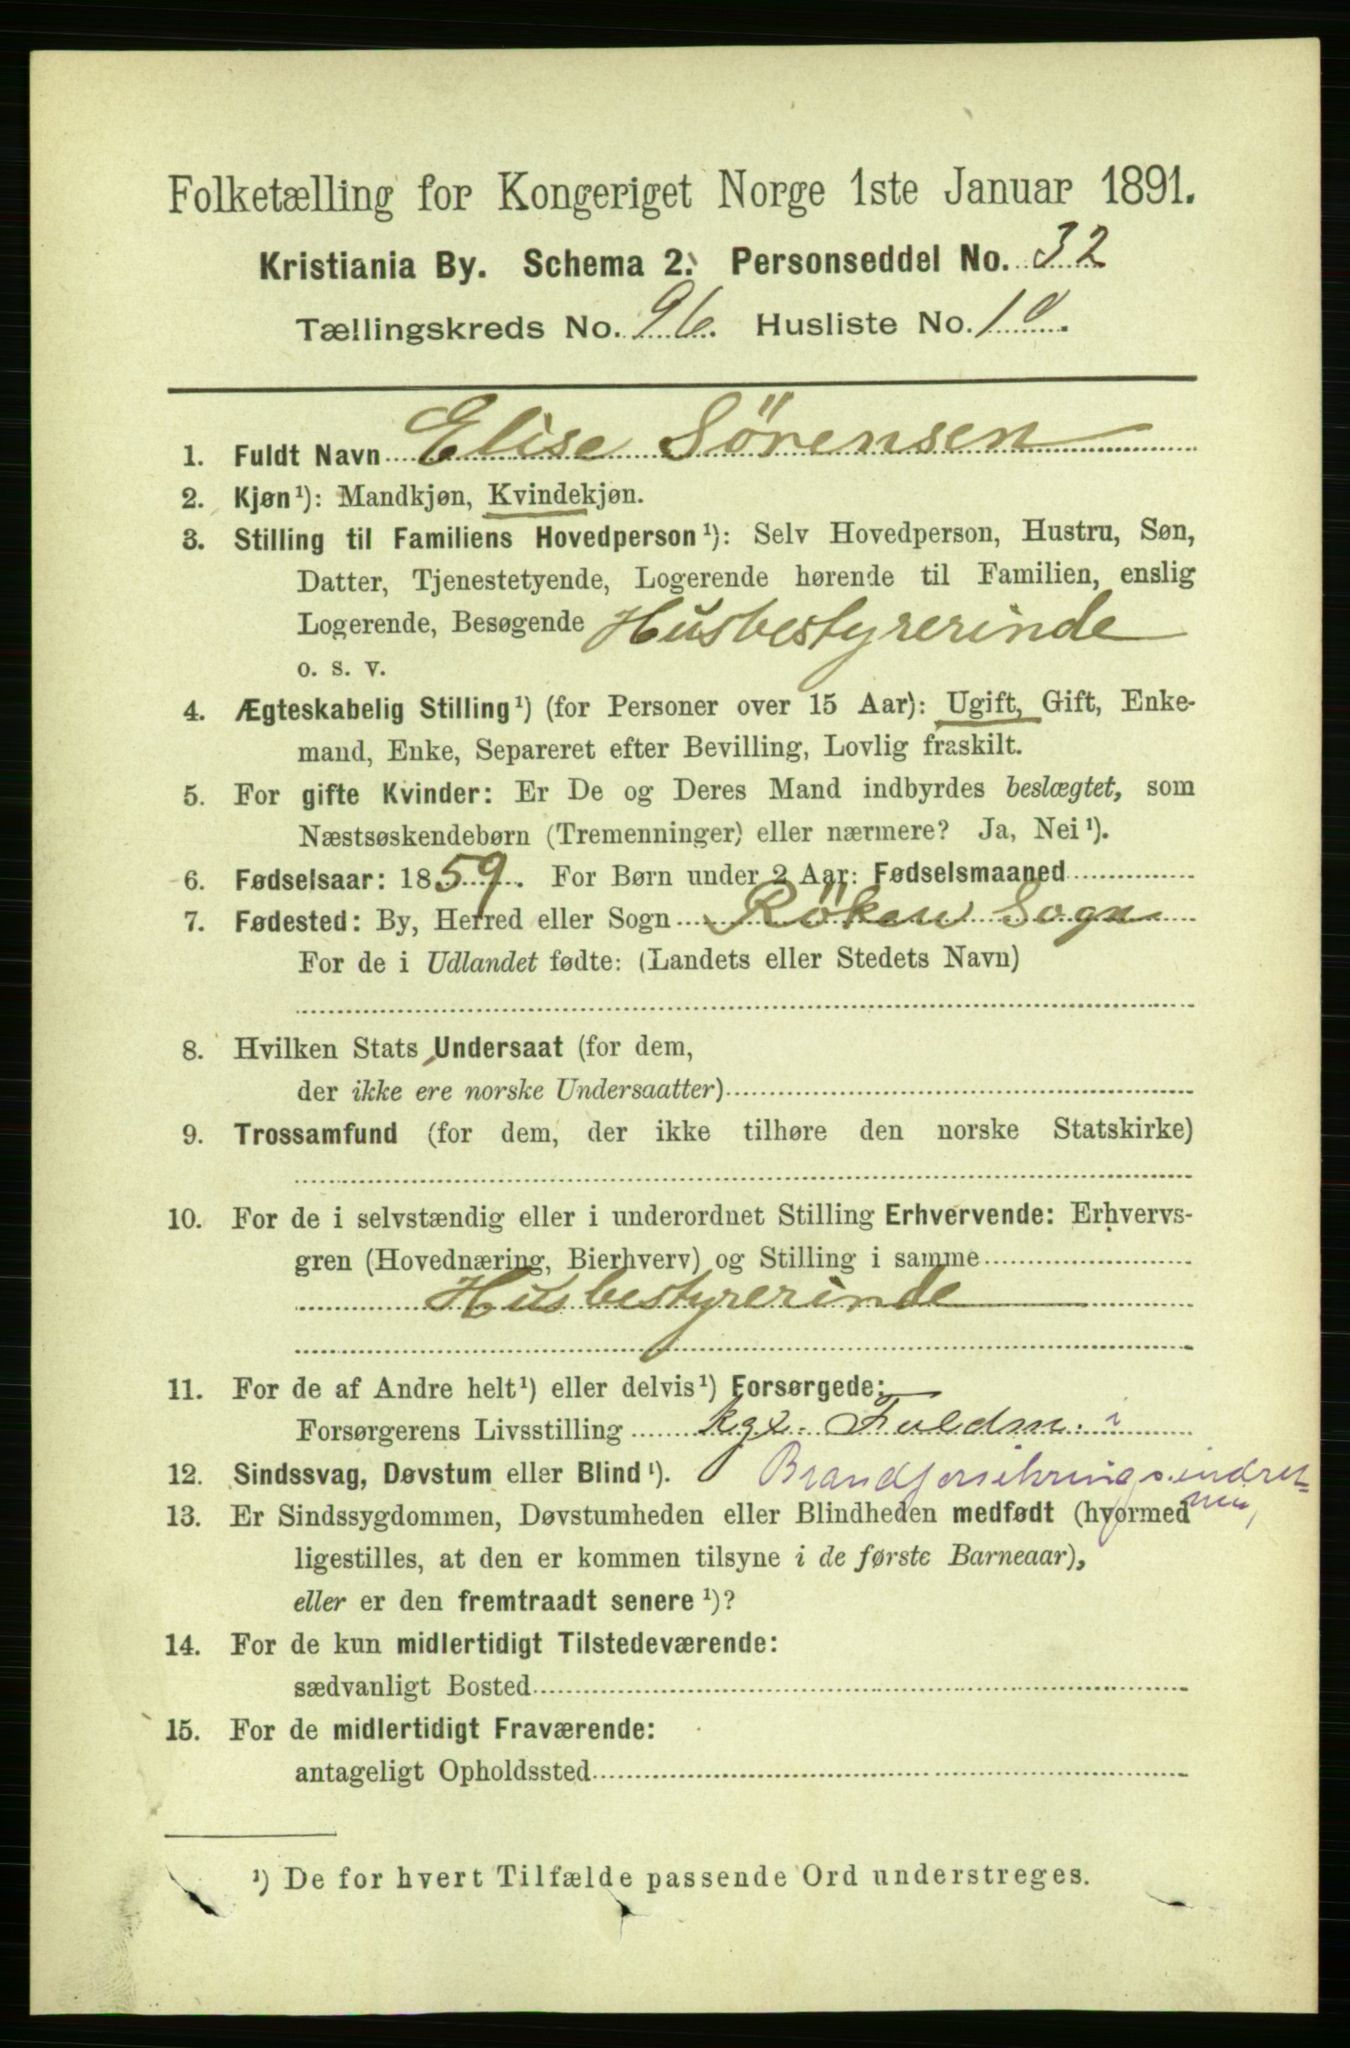 Folketælling for Kongeriget Norge 1ste Januar 1891.
Kristiania By. Schema 2. Personseddel No. 32
Tællingskreds No. 96. Husliste No. 10.
1. Fuldt Navn Elise Sörensen
2. Kjøn¹): Mandkjøn, Kvindekjøn.
3. Stilling til Familiens Hovedperson¹): Selv Hovedperson, Hustru, Søn,
Datter, Tjenestetyende, Logerende hørende til Familien, enslig
Logerende, Besøgende Husbestyrerinde
o. s. v.
4. Ægteskabelig Stilling¹) (for Personer over 15 Aar): Ugift, Gift, Enke-
mand, Enke, Separeret efter Bevilling, Lovlig fraskilt.
5. For gifte Kvinder: Er De og Deres Mand indbyrdes beslægtet, som
Næstsøskendebørn (Tremenninger) eller nærmere? Ja, Nei¹).
6. Fødselsaar: 1859. For Børn under 2 Aar: Fødselsmaaned
7. Fødested: By, Herred eller Sogn Röken Sogn
For de i Udlandet fødte: (Landets eller Stedets Navn)
8. Hvilken Stats Undersaat (for dem,
der ikke ere norske Undersaatter)
9. Trossamfund (for dem, der ikke tilhøre den norske Statskirke)
10. For de i selvstændig eller i underordnet Stilling Erhvervende: Erhvervs-
gren (Hovednæring, Bierhverv) og Stilling i samme
Husbestyrerinde
11. For de af Andre helt¹) eller delvis¹) Forsørgede:
Forsørgerens Livsstilling kgl. Fuldm. i
12. Sindssvag, Døvstum eller Blind¹). Brandforsikringsindret-
13. Er Sindssygdommen, Døvstumheden eller Blindheden medfødt (hvormed
ligestilles, at den er kommen tilsyne i de første Barneaar),
eller er den fremtraadt senere¹)?
14. For de kun midlertidigt Tilstedeværende:
sædvanligt Bosted
15. For de midlertidigt Fraværende:
antageligt Opholdssted
¹) De for hvert Tilfælde passende Ord understreges.